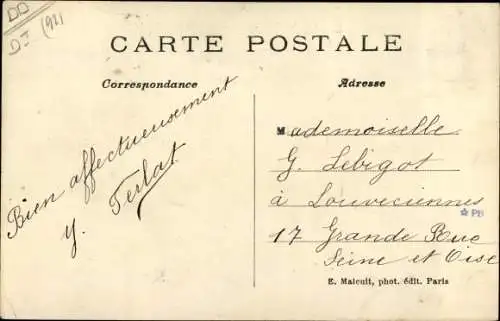 DD
DJ (921)
CARTE POSTALE
Correspondance
Adresse
Bien affectueusement
Y. Terlat
Mademoiselle
G. Lebigot
à Louveciennes
17 Grande Rue
Seine et Oise
PB
E. Malcuit, phot. édit. Paris